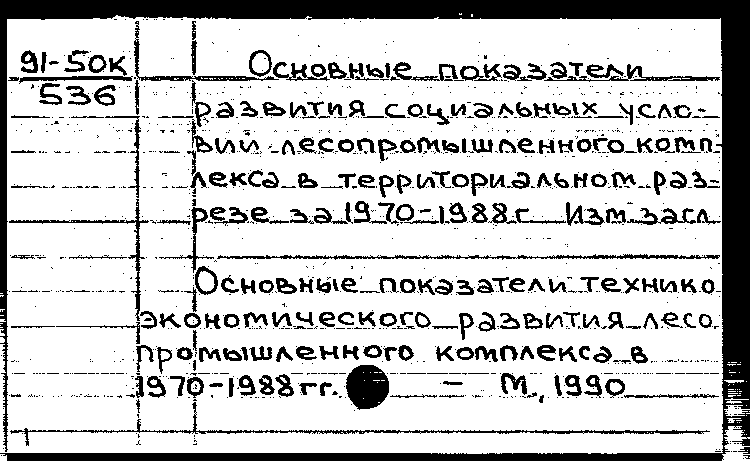 91-50К
536
Основные показатели
развития социальных усло-
вий лесопромышленного комп-
лекса в территориальном раз-
резе за 1970-1988г Изм.загл
Основные показатели технико
экономического развития лесо
промышленного комплекса в
1970-1988гг. — М., 1990